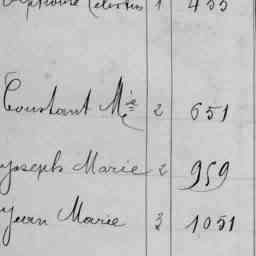 Célestin 1 455
Constant Mie 2 651
Joseph Marie 2 959
Jean Marie 3 1051